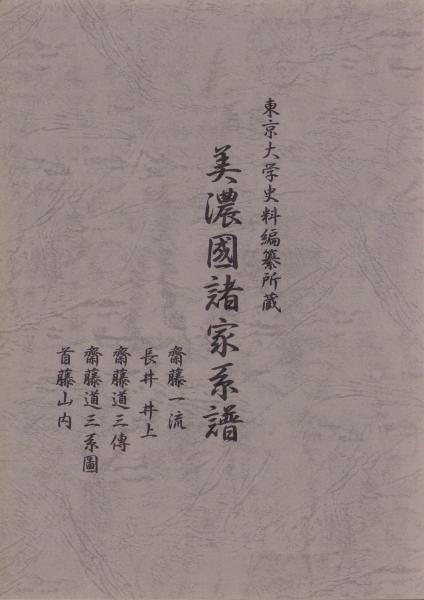 東京大学史料編纂所蔵
美濃國諸家系譜
齋藤一流
長井 井上
齋藤道三傳
齋藤道三系圖
首藤山内